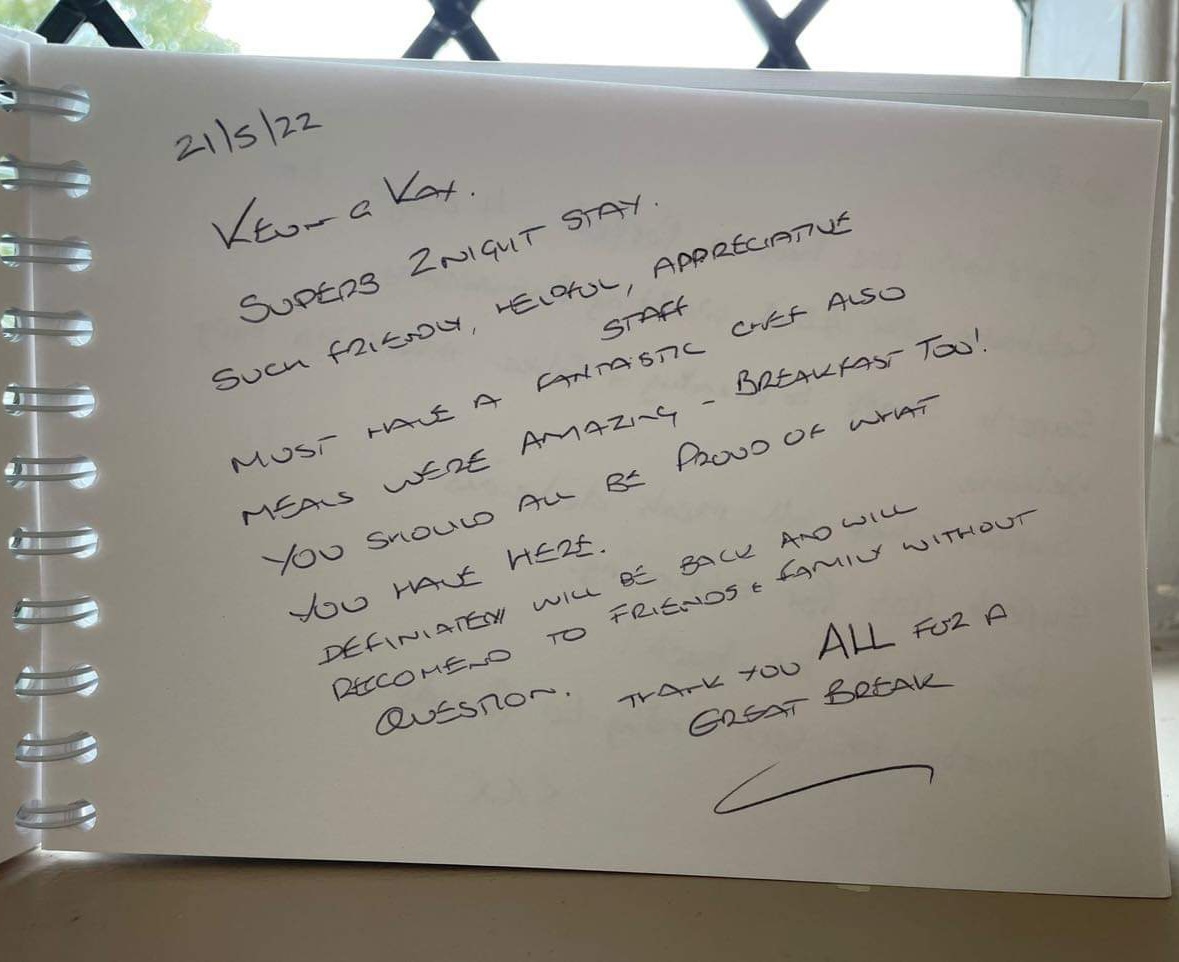 21/5/22
Kevin & Kay.
SUPERB 2 NIGHT STAY.
SUCH FRIENDLY, HELPFUL, APPRECIATIVE
STAFF
MUST HAVE A FANTASTIC CHEF ALSO
MEALS WERE AMAZING - BREAKFAST TOO!
YOU SHOULD ALL BE PROUD OF WHAT
YOU HAVE HERE.
DEFINIATELY WILL BE BACK AND WILL
RECCOMEND TO FRIENDS & FAMILY WITHOUT
QUESTION. THANK YOU ALL FOR A
GREAT BREAK